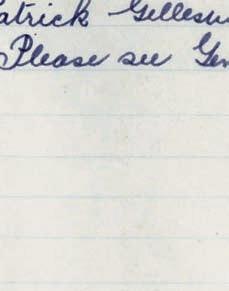 atrick Gillesp
Please see Gen